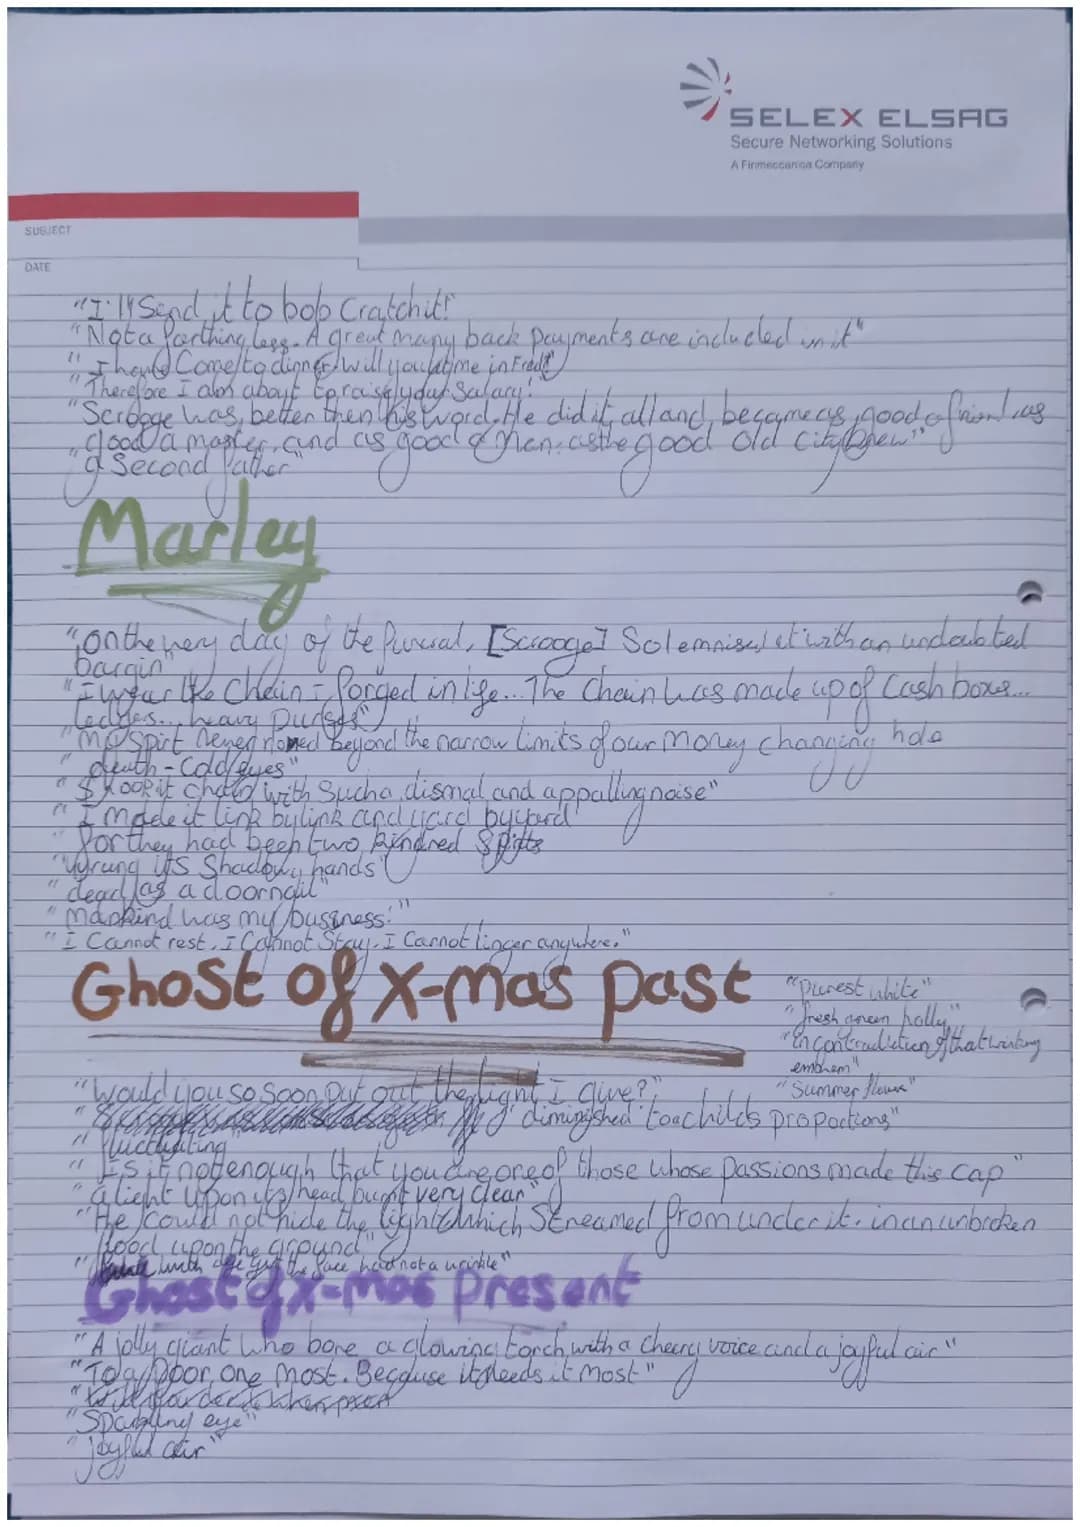 SELEX ELSAG
Secure Networking Solutions
A Finmeccanica Company
SUBJECT
DATE
"I'll Send it to bob Cratchit!"
"Not a farthing less. A great many back payments are included in it"
"I have Come to dinner. Will you let me in Fred?"
"Therefore I am about to raise your Salary!"
"Scrooge was better then his word. He did it all and became as good a friend, as
good a master, and as good a man, as the good old city knew"
"a Second father"
Marley
"on the very day of the funeral, [Scrooge] Solemnised it with an undoubted
bargin"
"I wear the Chain I forged in life... The Chain was made up of Cash boxes...
ledgers... heavy purses"
"my spirt never roved beyond the narrow limits of our money changing hole
"death-Cold eyes"
"Shook it chain with Such a dismal and appalling noise"
"I made it link by link and yard by yard"
"for they had been two kindred Spirits
"wrung its Shadowy hands"
"dead as a doornail"
"Mankind was my business!"
"I Cannot rest, I Cannot Stay. I Cannot linger anywhere."
Ghost of X-mas past
"purest white"
"fresh green holly"
"in contradiction of that wintry
emblem"
"Summer flower"
"Would you so soon put out the light I give?"
"diminished to a childs proportions"
"fluctuating"
"Is it not enough that you are one of those whose passions made this cap"
"a light upon its head burnt very clear"
"He could not hide the light which Streamed from under it, in an unbroken
flood upon the ground"
" with age yet the face had not a wrinkle"
Ghost of x-mas present
"A jolly giant who bore a glowing torch, with a cheery voice and a joyful air"
"To a poor one most. Because it needs it most"
"Sparkling eye"
"joyful air"